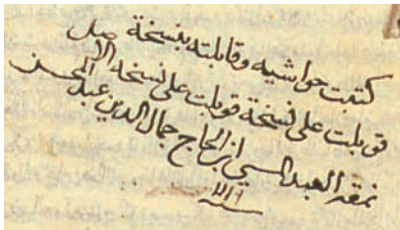 كتبت حواشيه وقابلته بنسخة
قوبلت على نسخة قوبلت على نسخة الاصل
نمقه العبد المسيء ابن الحاج جمال الدين عبد المحسن